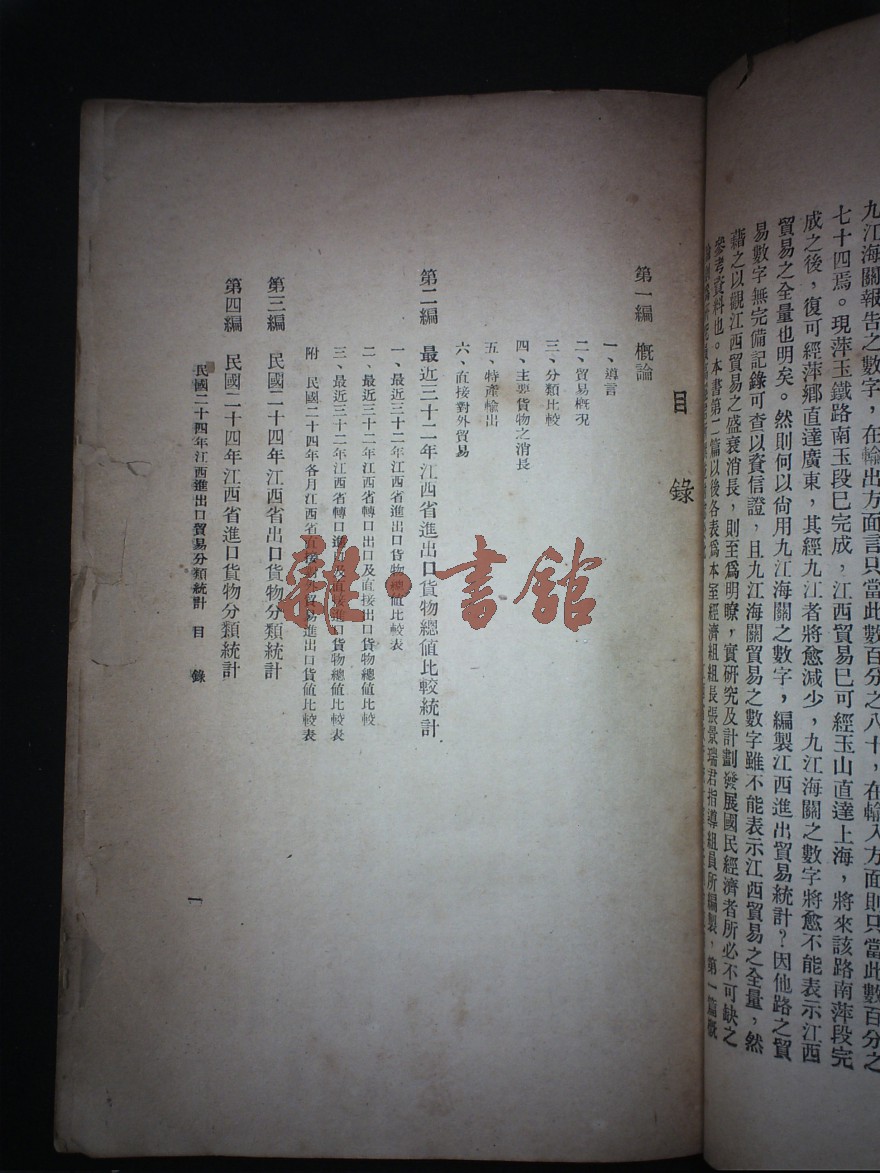 九江海關報告之數字，在輸出方面言只當此數百分之八十，在輸入方面則只當此數百分之
七十四焉。現萍玉鐵路南玉段已完成，江西貿易已可經玉山直達上海，將來該路南萍段完
成之後，復可經萍鄉直達廣東，其經九江者將愈減少，九江海關之數字將愈不能表示江西
貿易之全量也明矣。然則何以尙用九江海關之數字，編製江西進出貿易統計？因他路之貿
易數字無完備記錄可查以資信證，且九江海關貿易之數字雖不能表示江西貿易之全量，然
藉之以觀江西貿易之盛衰消長，則至爲明瞭，實研究及計劃發展國民經濟者所必不可缺之
參考資料也。本書第二篇以後各表爲本室經濟組組長張景瑞君指導組員所編製，第一篇概
目錄
第一編 概論
一、導言
二、貿易概況
三、分類比較
四、主要貨物之消長
五、特產輸出
六、直接對外貿易
第二編 最近三十二年江西省進出口貨物總值比較統計
一、最近三十二年江西省進出口貨物總値比較表
二、最近三十二年江西省轉口出口及直接出口貨物總値比較
三、最近三十二年江西省轉口進口及直接進口貨物總値比較表
附 民國二十四年各月江西省直接對外貿易進出口貨値比較表
第三編 民國二十四年江西省出口貨物分類統計
第四編 民國二十四年江西省進口貨物分類統計
民國二十四年江西進出口貿易分類統計 目錄
一
雜·書館